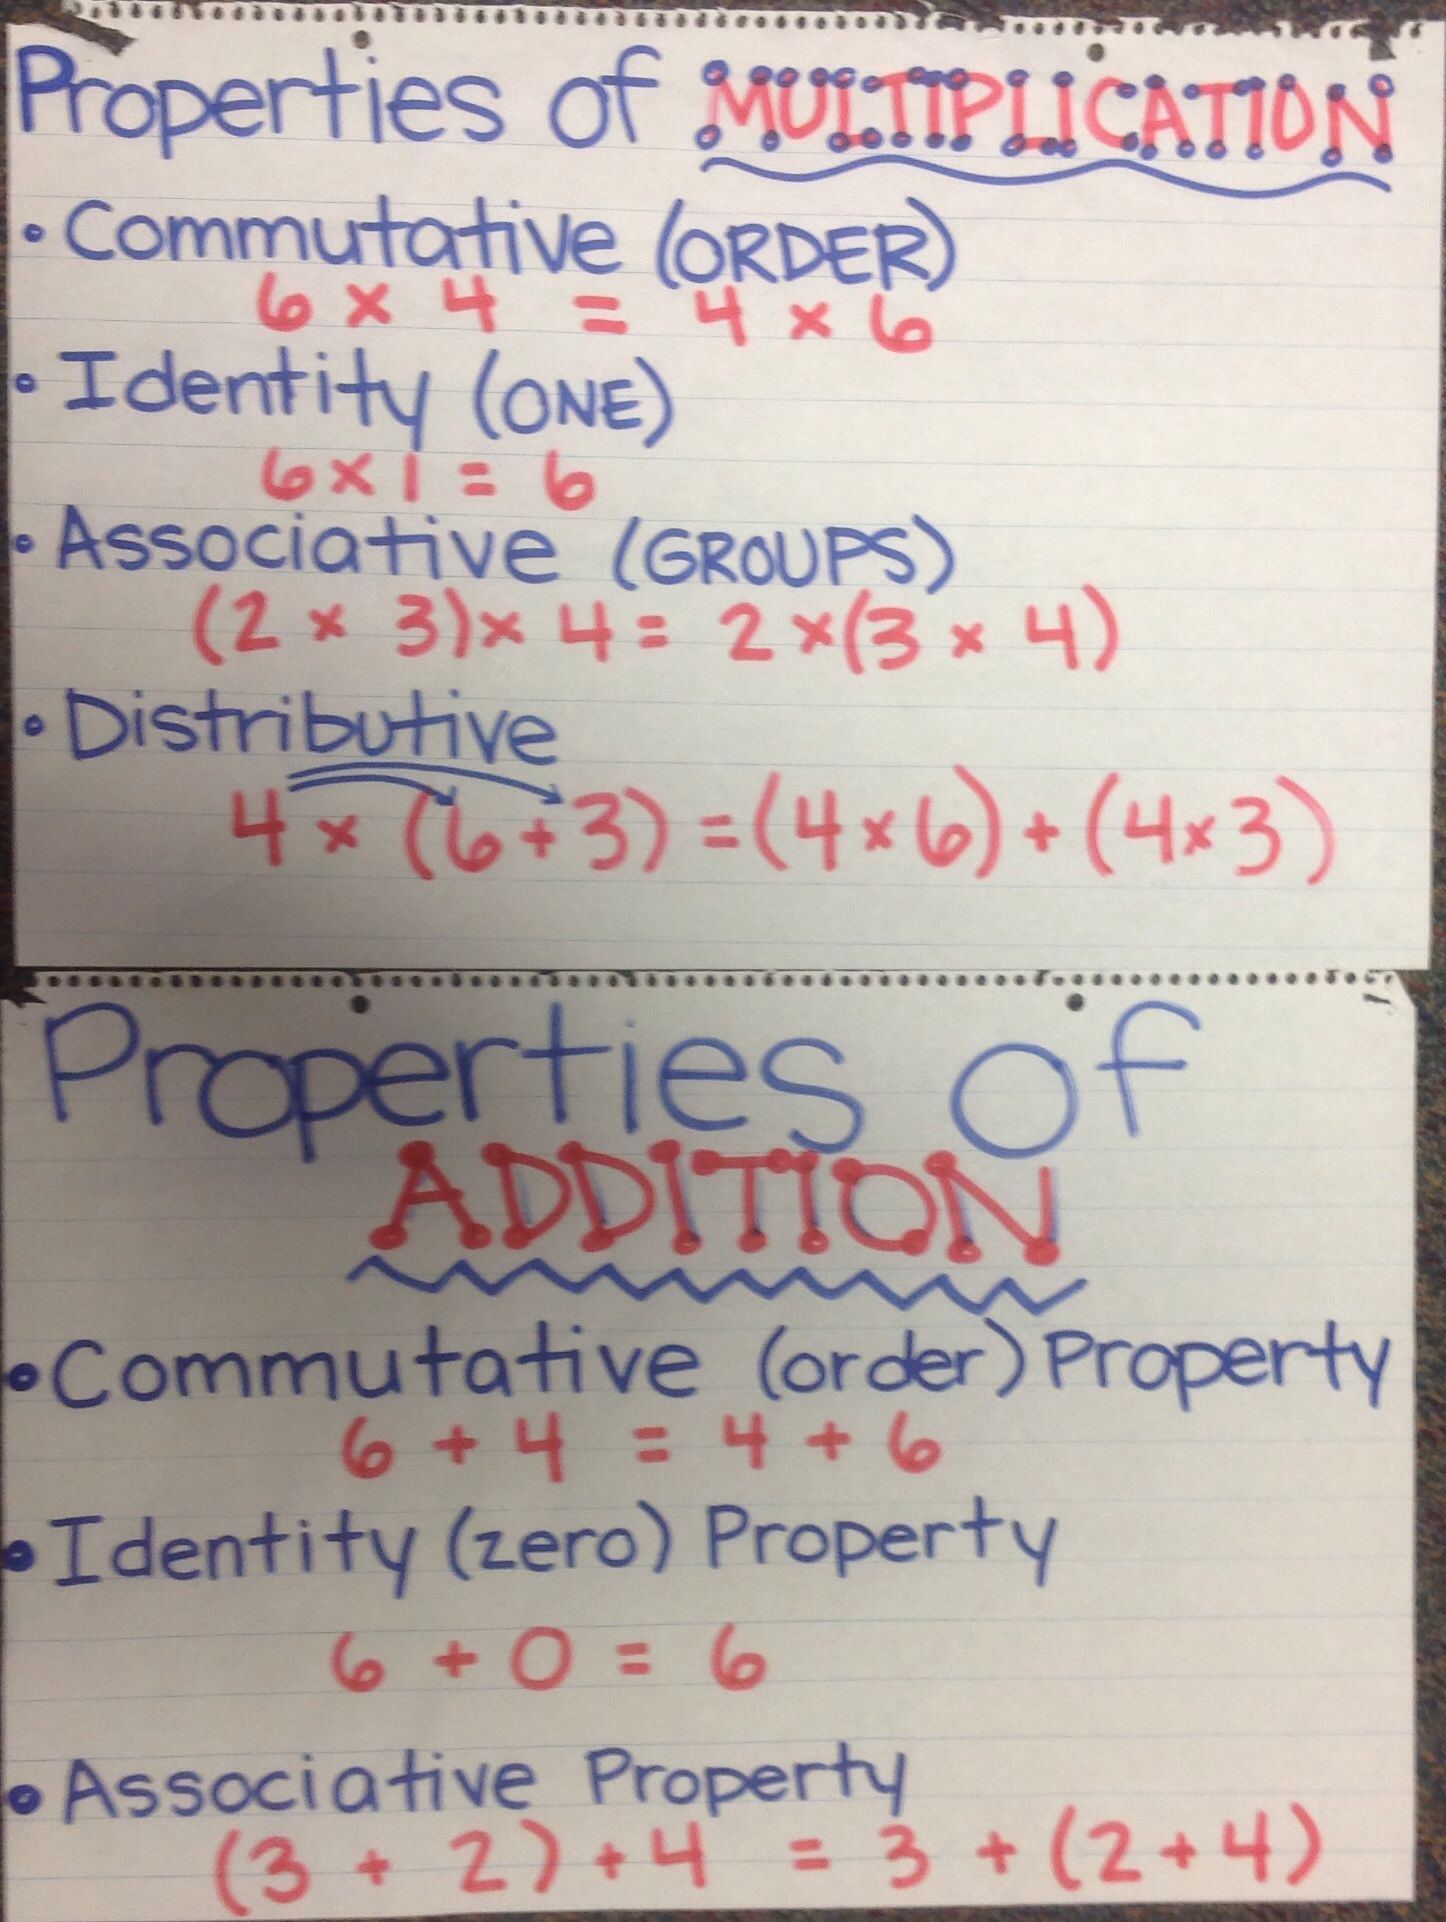 Properties of MULTIPLICATION
• Commutative (ORDER)
6 × 4 = 4 × 6
• Identity (ONE)
6 × 1 = 6
• Associative (GROUPS)
(2 × 3) × 4 = 2 × (3 × 4)
• Distributive
4 × (6 + 3) = (4 × 6) + (4 × 3)
Properties of
ADDITION
• Commutative (order) Property
6 + 4 = 4 + 6
• Identity (zero) Property
6 + 0 = 6
• Associative Property
(3 + 2) + 4 = 3 + (2 + 4)